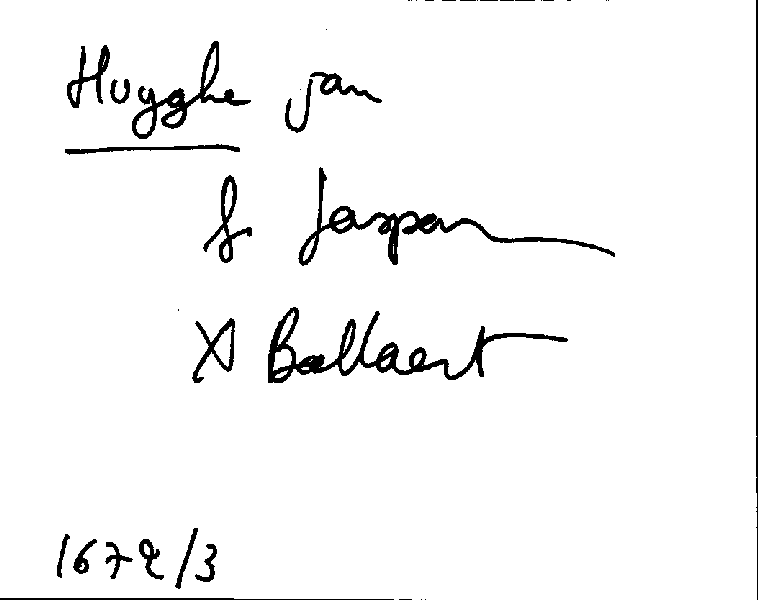 Huyghe jan
f. Jaspar
X Ballaert
1672/3